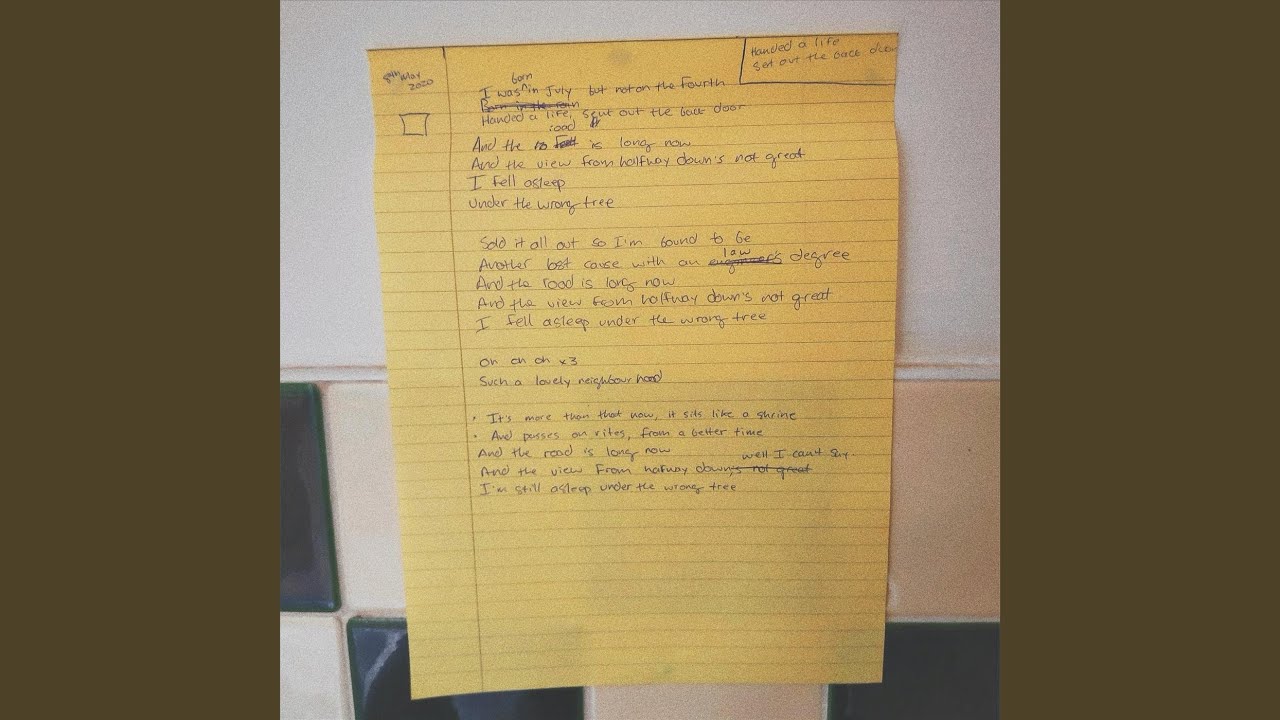 Handed a life
Set out the back door
8th May
2020
born
I was ^ in July but not on the Fourth
Born in the rain
Handed a life, set out the back door
road
And the is long now
And the view from halfway down's not great
I fell asleep
Under the wrong tree
Sold it all out so I'm bound to be
law
Another lost cause with an engineer's degree
And the road is long now
And the view from halfway down's not great
I fell asleep under the wrong tree
Oh oh oh x3
Such a lovely neighbourhood
• It's more than that now, it sits like a shrine
• And passes on rites, from a better time
And the road is long now
well I can't say.
And the view from hafway down's not great
I'm still asleep under the wrong tree